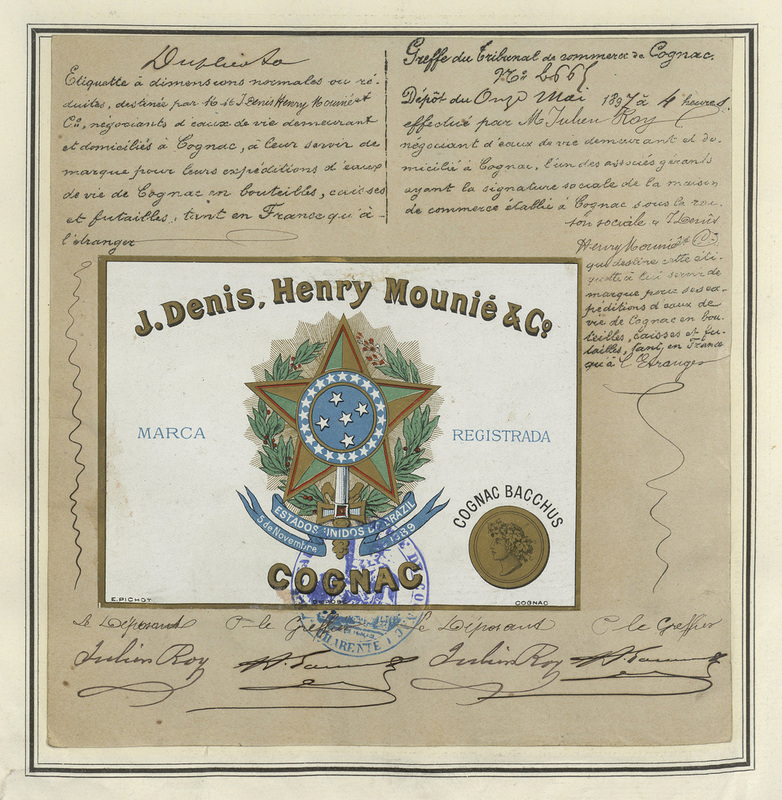 Duplicata
Etiquette à dimensions normales ou ré-
duites, destinée par M st J Denis Henry Mounié et
Cie, négociants d'eaux de vie demeurant
et domiciliés à Cognac, à leur servir de
marque pour leurs expéditions d'eaux
de vie de Cognac en bouteilles, caisses
et futailles, tant en France qu'à
l'étranger
Greffe du Tribunal de commerce de Cognac.
No 2665
Dépôt du Onze Mai 1897 à 4 heures
effectué par M. Julien Roy
négociant d'eaux de vie demeurant et do-
micilié à Cognac, l'un des associés gérants
ayant la signature sociale de la maison
de commerce établie à Cognac sous la rai-
son sociale J. Denis
Henry Mounié et Cie
qui destine cette éti-
quette à lui servir de
marque pour ses ex-
péditions d'eaux de
vie de Cognac en bou-
teilles, caisses et fu-
tailles, tant en France
qu'à l'Etranger
J. Denis, Henry Mounié & Co.
MARCA REGISTRADA
ESTADOS UNIDOS DO BRAZIL
5 de Novembre 1389
COGNAC BACCHUS
COGNAC
E. PICHOT COGNAC
CHARENTE
Le Déposant P. le Greffier Le Déposant P. le Greffier
Julien Roy Julien Roy